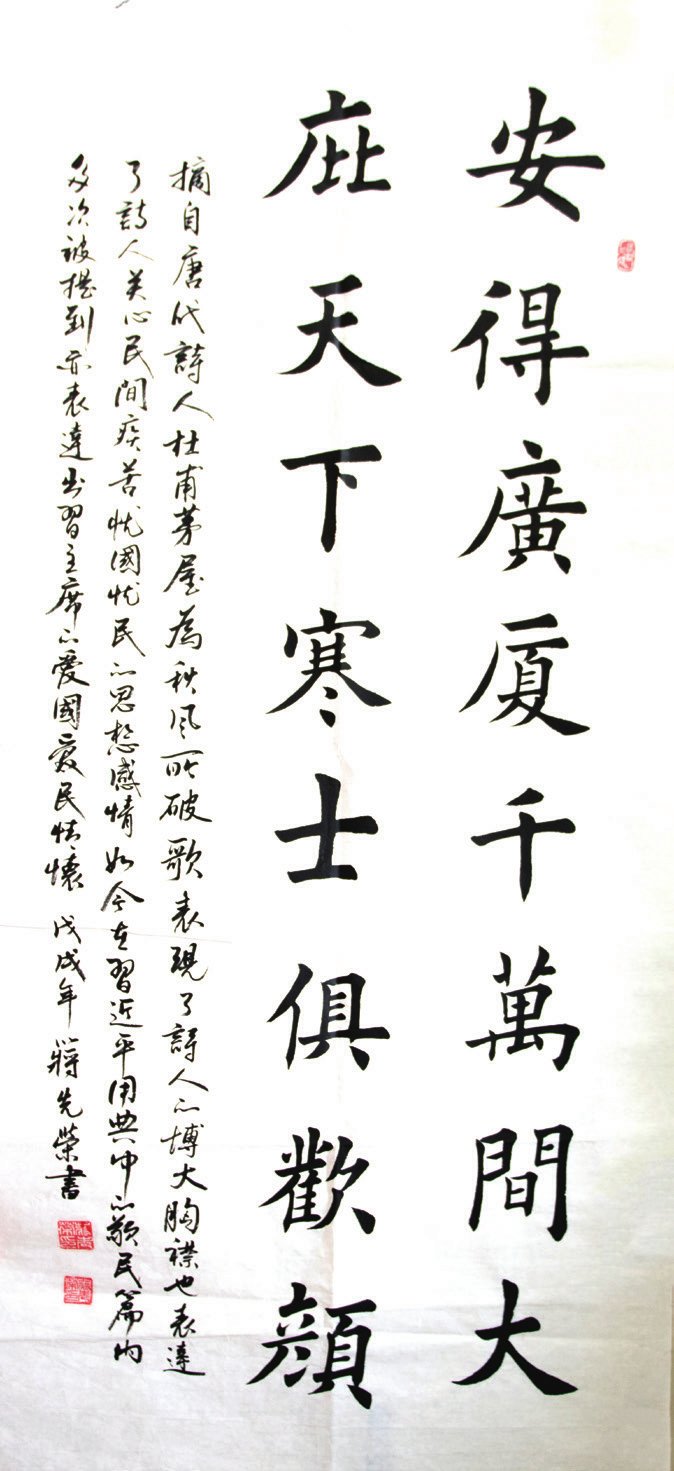 安得廣廈千萬間大
庇天下寒士俱歡顔
摘自唐代詩人杜甫茅屋為秋风所破歌表現了詩人的博大胸襟也表達
了詩人关心民間疾苦忧國忧民的思想感情如今在習近平用典中的敬民篇内
多次被提到亦表達出習主席的爱國爱民情懷 戊戌年 蔣先荣書